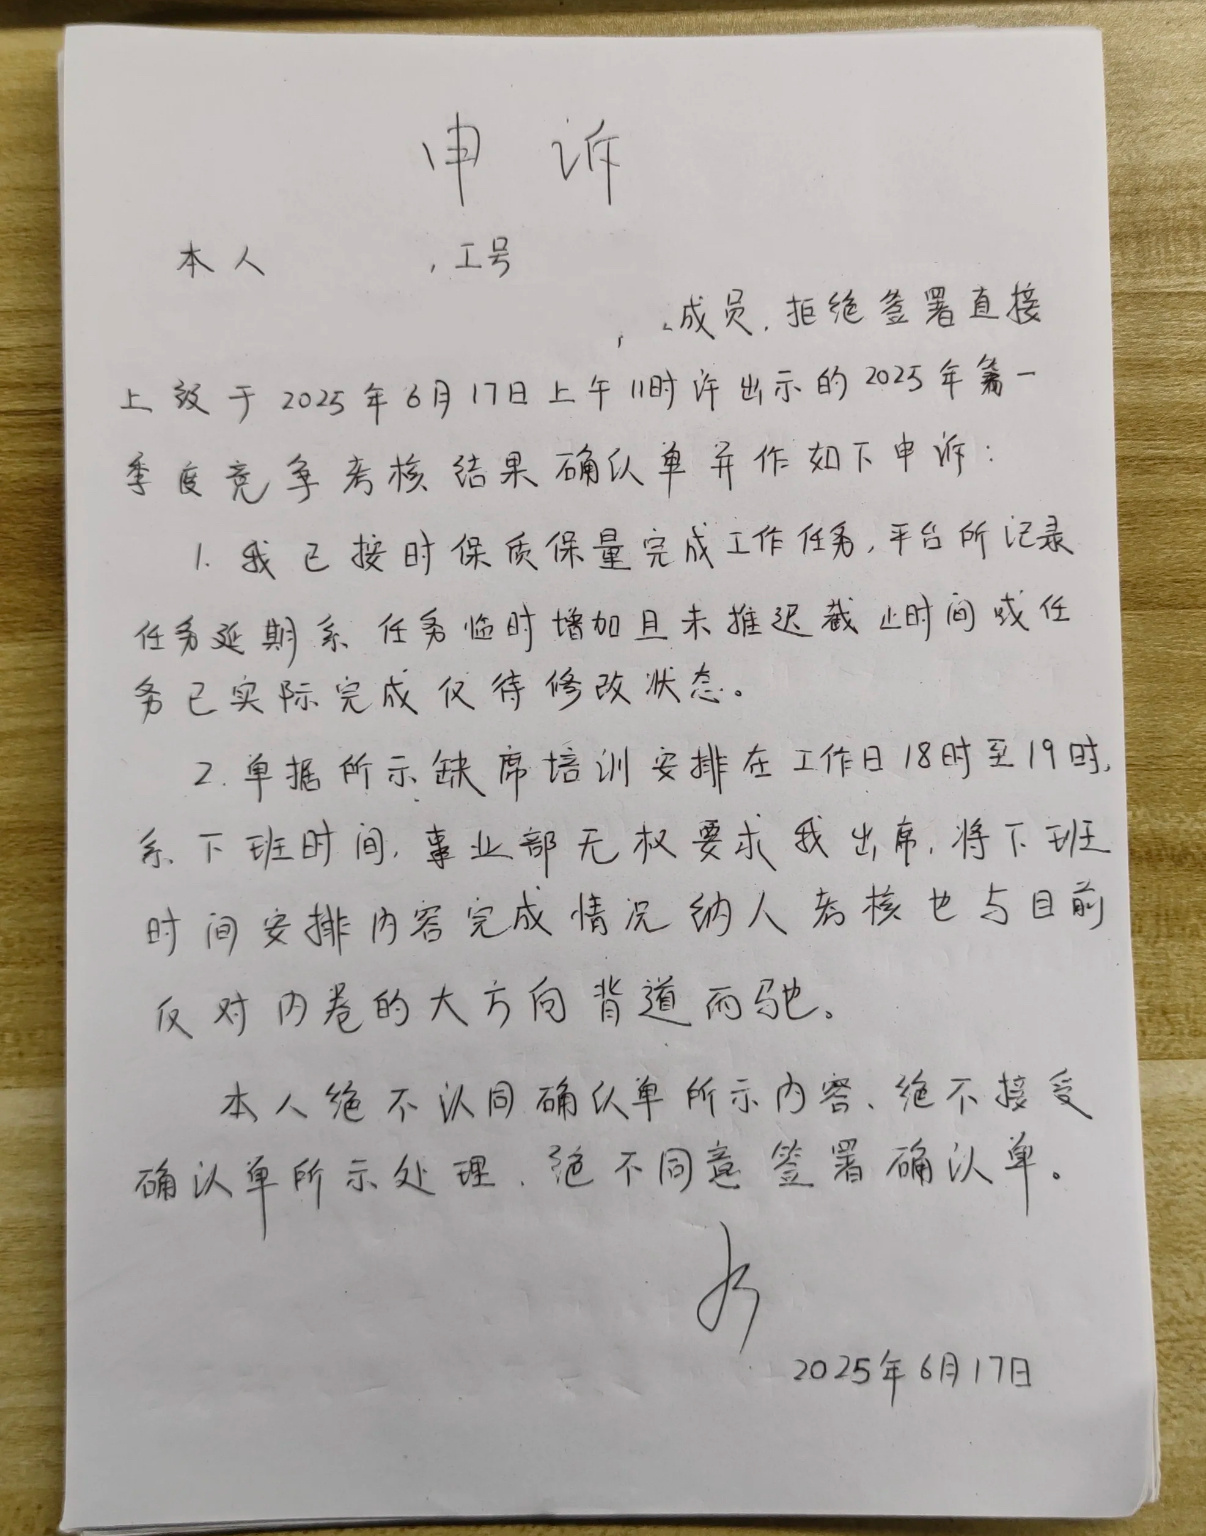 申 诉
本人 ，工号
，成员，拒绝签署直接
上级于2025年6月17日上午11时许出示的2025年第一
季度竞争考核结果确认单并作如下申诉：
1. 我已按时保质保量完成工作任务，平台所记录
任务延期系任务临时增加且未推迟截止时间或任
务已实际完成仅待修改状态。
2. 单据所示缺席培训安排在工作日18时至19时，
系下班时间，事业部无权要求我出席，将下班
时间安排内容完成情况纳入考核也与目前
反对内卷的大方向背道而驰。
本人绝不认同确认单所示内容、绝不接受
确认单所示处理、绝不同意签署确认单。
2025年6月17日